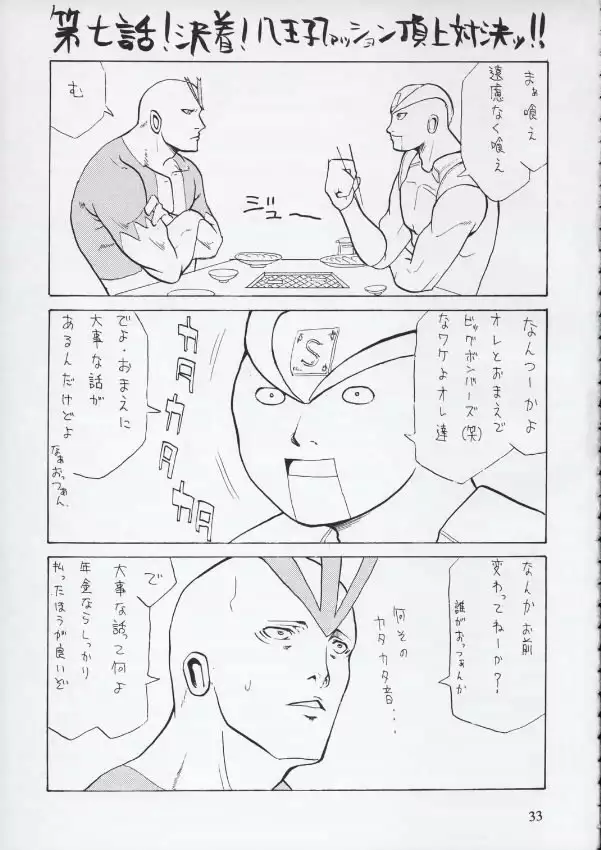 第七話!決着!八王子ファッション頂上対決ッ!!
まぁ喰え
遠慮なく喰え
む
ジュー
なんつーかよ
オレとおまえで
ビッグボンバーズ(笑)
なワケよオレ達
S
でよ・おまえに
大事な話が
あるんだけどよ
なぁおっつぁん
カタカタカタカタ
なんかお前
変わってねーか?
誰がおっつぁんか
何その
カタカタ音・・・
で
大事な話って何よ
年金ならしっかり
払ったほうが良いぞ
33